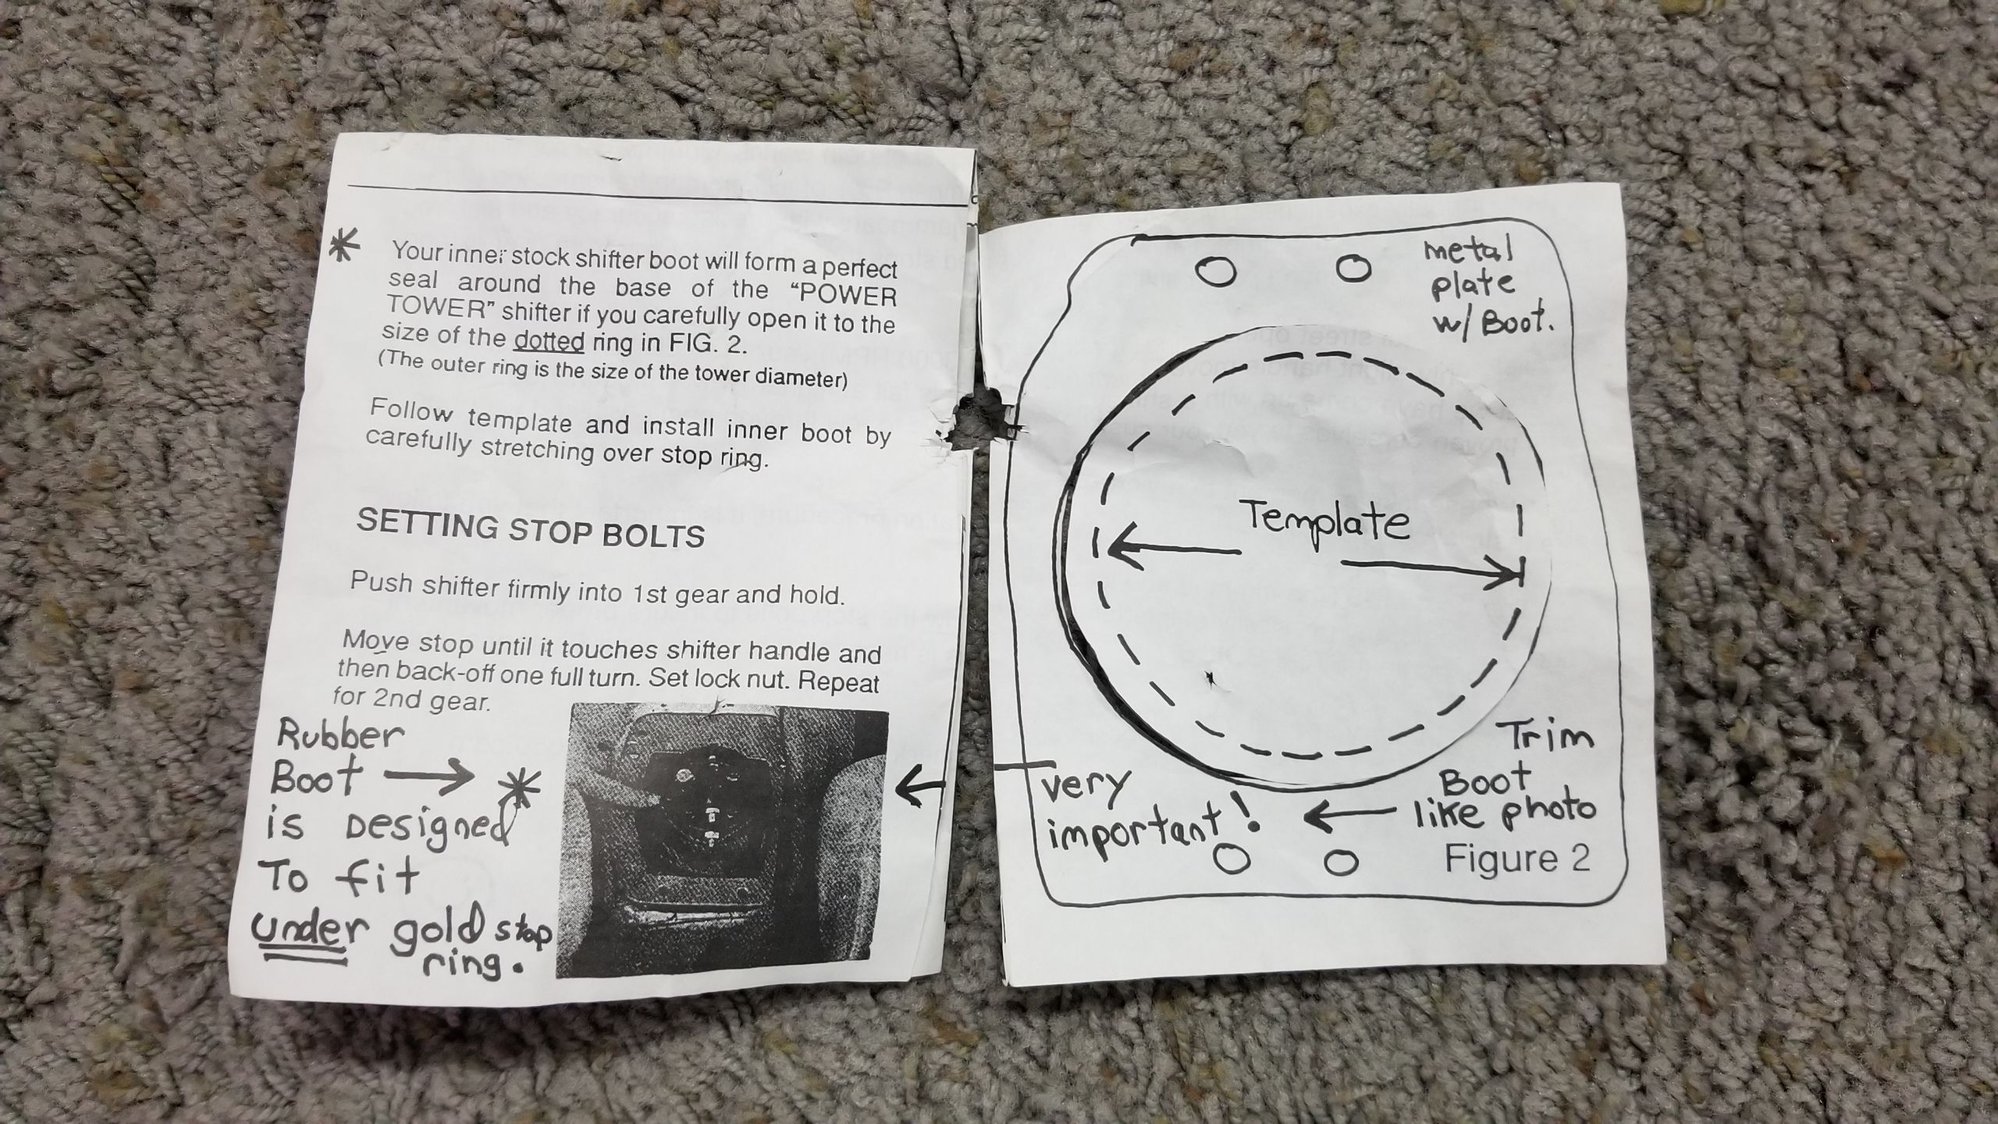 * Your inner stock shifter boot will form a perfect
seal around the base of the “POWER
TOWER” shifter if you carefully open it to the
size of the dotted ring in FIG. 2.
(The outer ring is the size of the tower diameter)
Follow template and install inner boot by
carefully stretching over stop ring.
SETTING STOP BOLTS
Push shifter firmly into 1st gear and hold.
Move stop until it touches shifter handle and
then back-off one full turn. Set lock nut. Repeat
for 2nd gear.
Rubber
Boot → *
is Designed
To fit
under gold stop
ring.
metal
plate
w/ Boot.
Template
very
important!
Trim
Boot
like photo
Figure 2